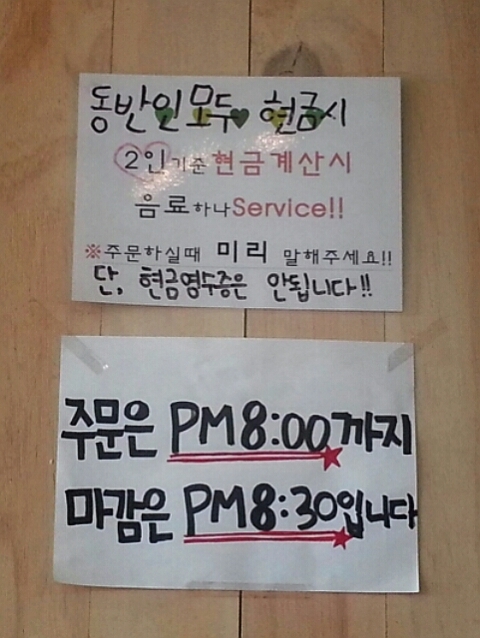 동반인 모두 현금시
2인기준현금계산시
음료하나Service!!
※주문하실때 미리 말해주세요!!
단, 현금영수증은 안됩니다!!
주문은 PM8:00까지
마감은 PM8:30입니다